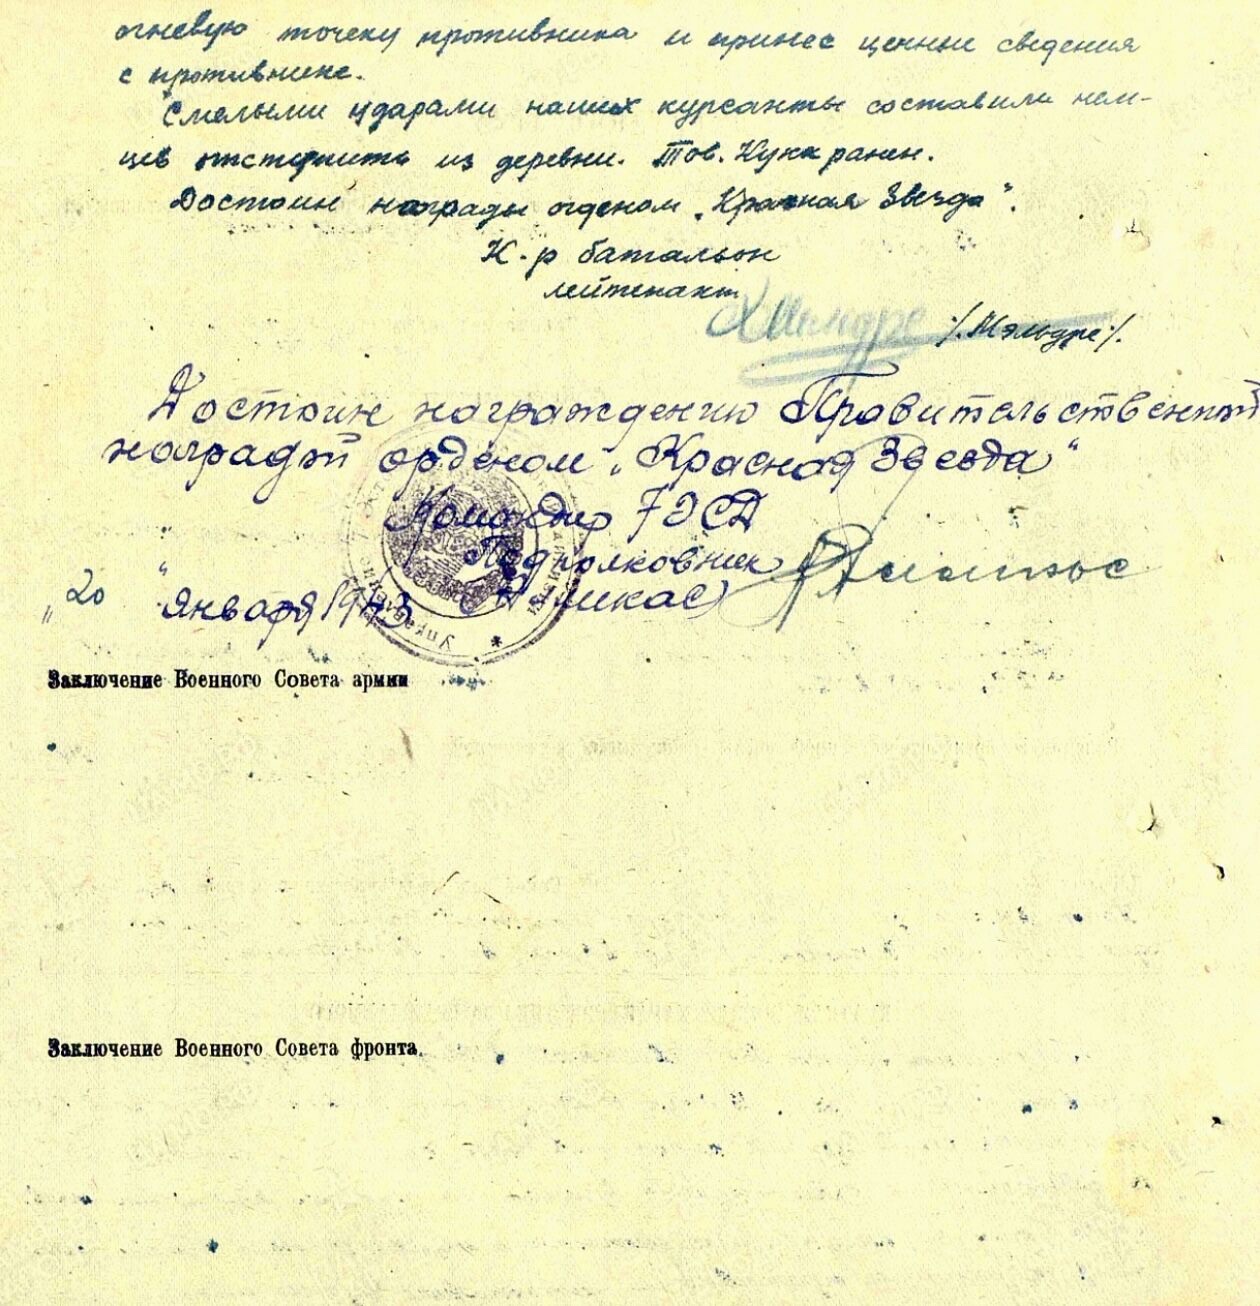 огневую точку противника и принес ценные сведения
с противнике.
Смелыми ударами наших курсанты составили нем-
цев отступить из деревни. Тов. Кукк ранен.
Достоин награды орденом „Красная Звезда".
К-р батальон
лейтенант
/.Мэльдре/.
Достоин награждению Правительственной
наградой орденом „Красная Звезда"
Командир 7ЭСД
Подполковник
„20" января 1943
Управление
Заключение Военного Совета армии
Заключение Военного Совета фронта